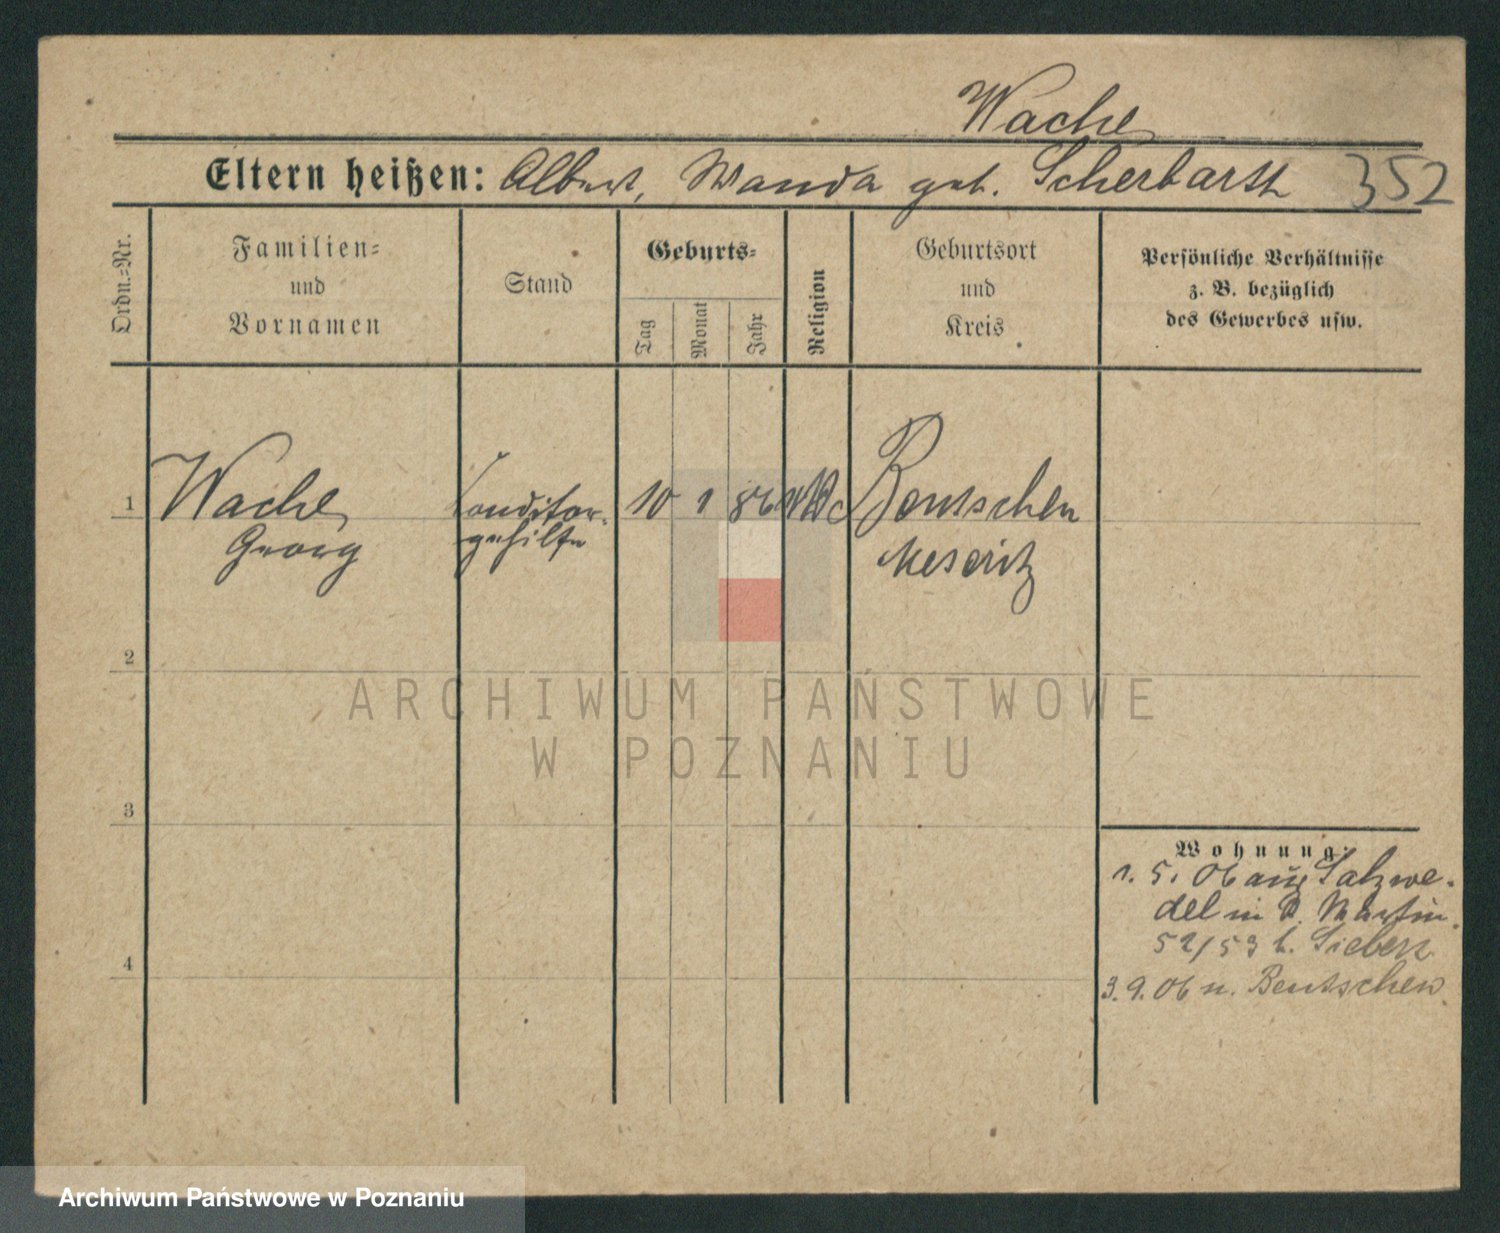 Wache
Eltern heißen: Albert, Wanda geb. Scherbarth 352
Ordn.=Nr.
Familien=
und
Vornamen
Stand
Geburts=
Tag
Monat
Jahr
Religion
Geburtsort
und
Kreis
Persönliche Verhältnisse
z. B. bezüglich
des Gewerbes usw.
1 Wache Conditor- 10 1 86 Bentschen
Georg gehilfe Meseritz
2
3
4
ARCHIWUM PAŃSTWOWE
W POZNANIU
Wohnung:
1. 5. 06 aus Salzwe-
del in St. Martin
52/53 b. Siebert
3. 9. 06 n. Bentschen
Archiwum Państwowe w Poznaniu